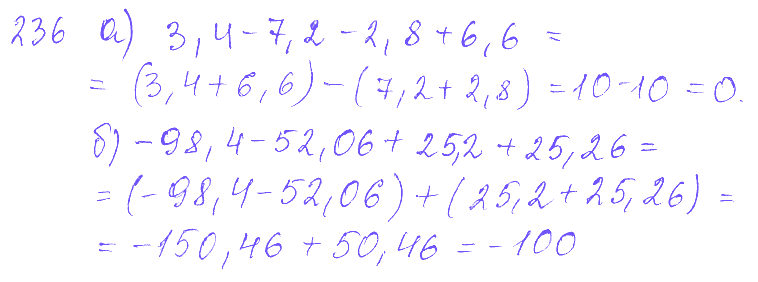 236 а) 3,4-7,2-2,8+6,6 =
= (3,4+6,6)-(7,2+2,8) = 10-10 = 0.
б) -98,4-52,06+25,2+25,26 =
= (-98,4-52,06)+(25,2+25,26) =
= -150,46+50,46 = -100